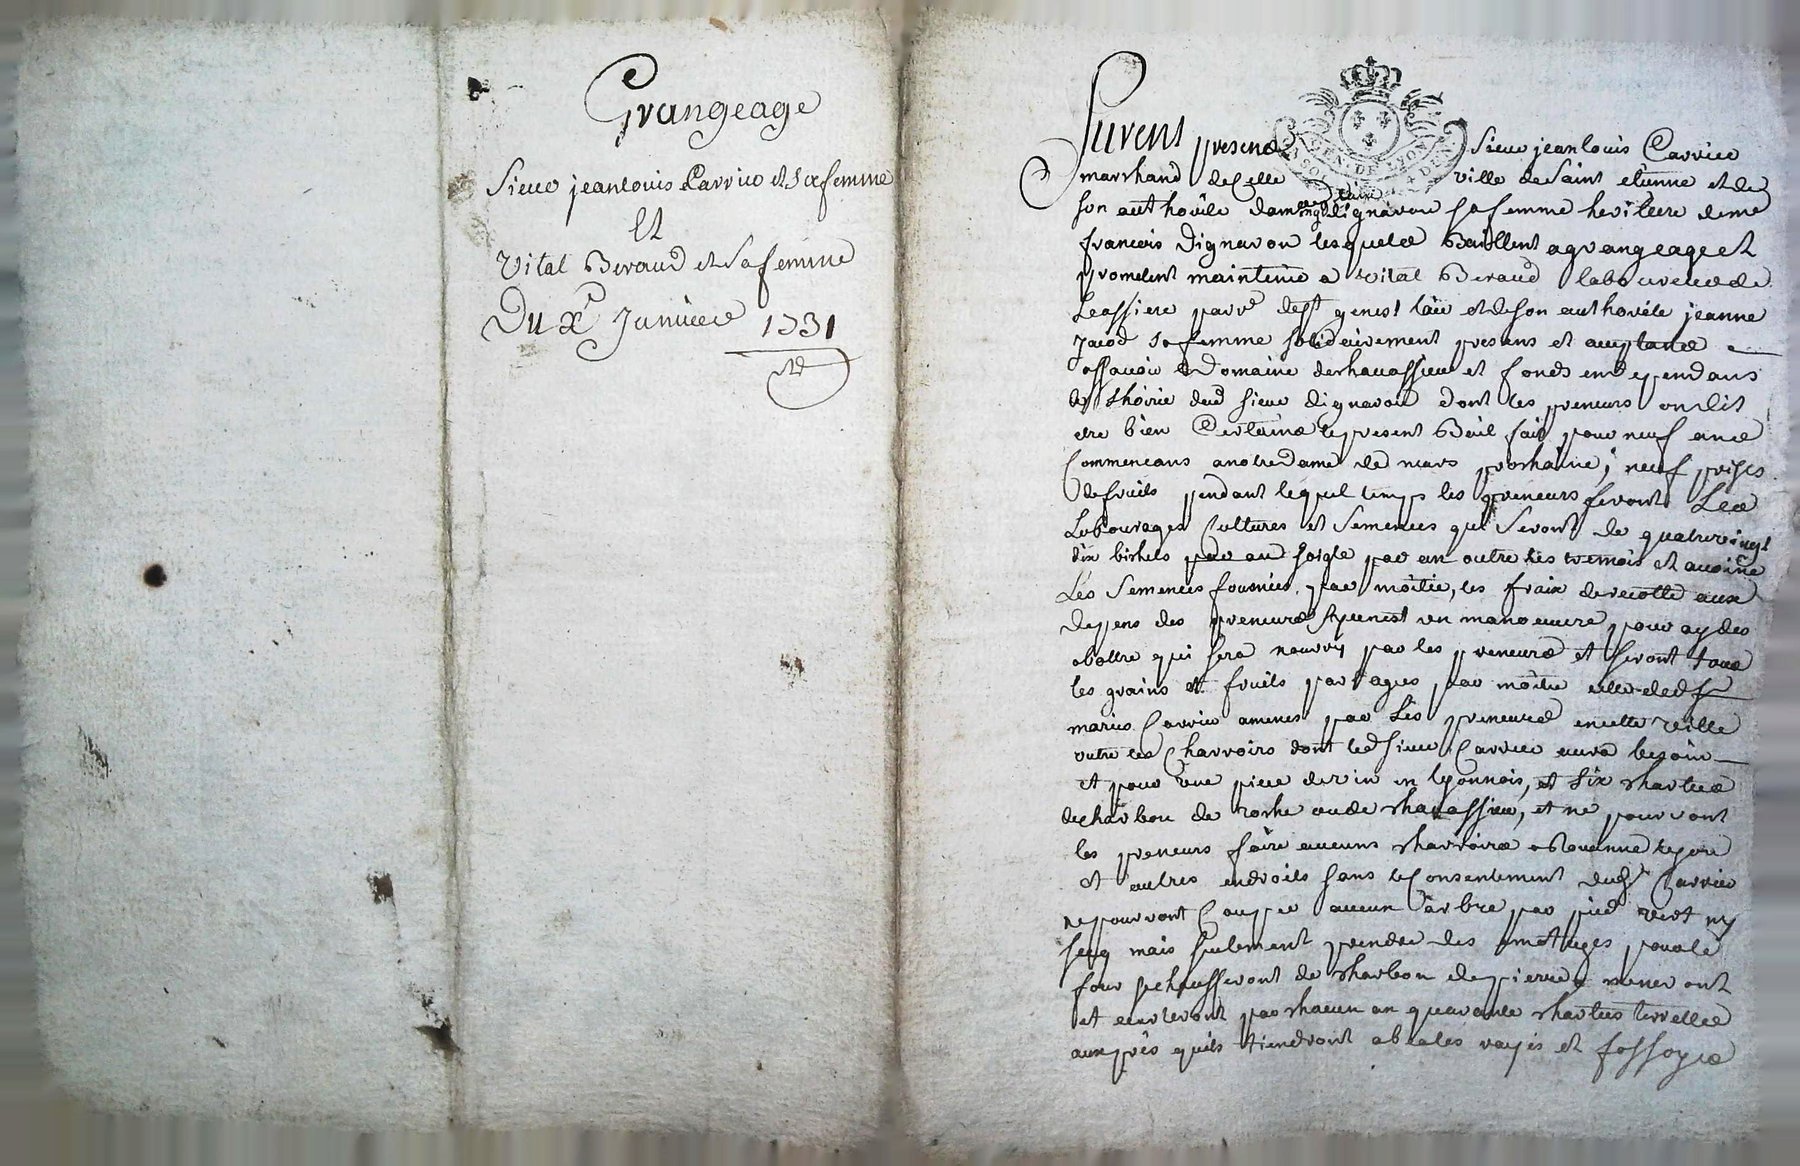 Grangeage
Sieur jean louis Carrier et sa femme
Et
Vital Beraud et sa femme
Du xe Janvier 1731
GEN. DE LYON
Furent presens Sieur jean louis Carrier
marchand de Cette ville de Saint etienne et de
son authorite dam dignaron sa femme heritiere de me
francois dignaron lesquels Baillent a grangeage et
promettent maintenir a vital Beraud laboureur de
parre de st genest et de son authorite jeanne
sa femme solidairement presens et acceptans
assavoir le Domaine de chavassieu et fonds en dependans
de lhoirie dud sieur dignaron dont les preneurs ont dit
etre bien Certains le present Bail fait pour neuf ans
Commencans a notre dame de mars prochaine, neuf prises
de fruits pendant lequel temps les preneurs feront Les
Labourages Cultures et Semences qui Seront de quatrevingt
dix bichets soigle par an outre les tremois et avoine
Les Semences fournies par moitie, les fraix de recolte aux
depens des preneurs un manoeuvre pour ayder
abattre qui sera nourry par les preneurs et seront tous
les grains et fruits partages par moitie celle dud sr
maries Carrier amenes par Les preneurs en cette ville
outre les Charroirs dont led sieur Carrier aura besoin
et pour une piece de vin en lyonnois, et six charrees
de charbon de roche ou de chavassieu, et ne pourront
les preneurs faire aucuns charroirs a Rouanne
et autres endroits sans le Consentement dud sr Carrier
ne pourront Couper aucun arbre par pied vert ny
secq mais seulement prendre des pour le
four se chaufferont de charbon de pierre meneront
et par chacun an quarante charrees terrelles
aux pres quils tiendront rayes et fossoyes